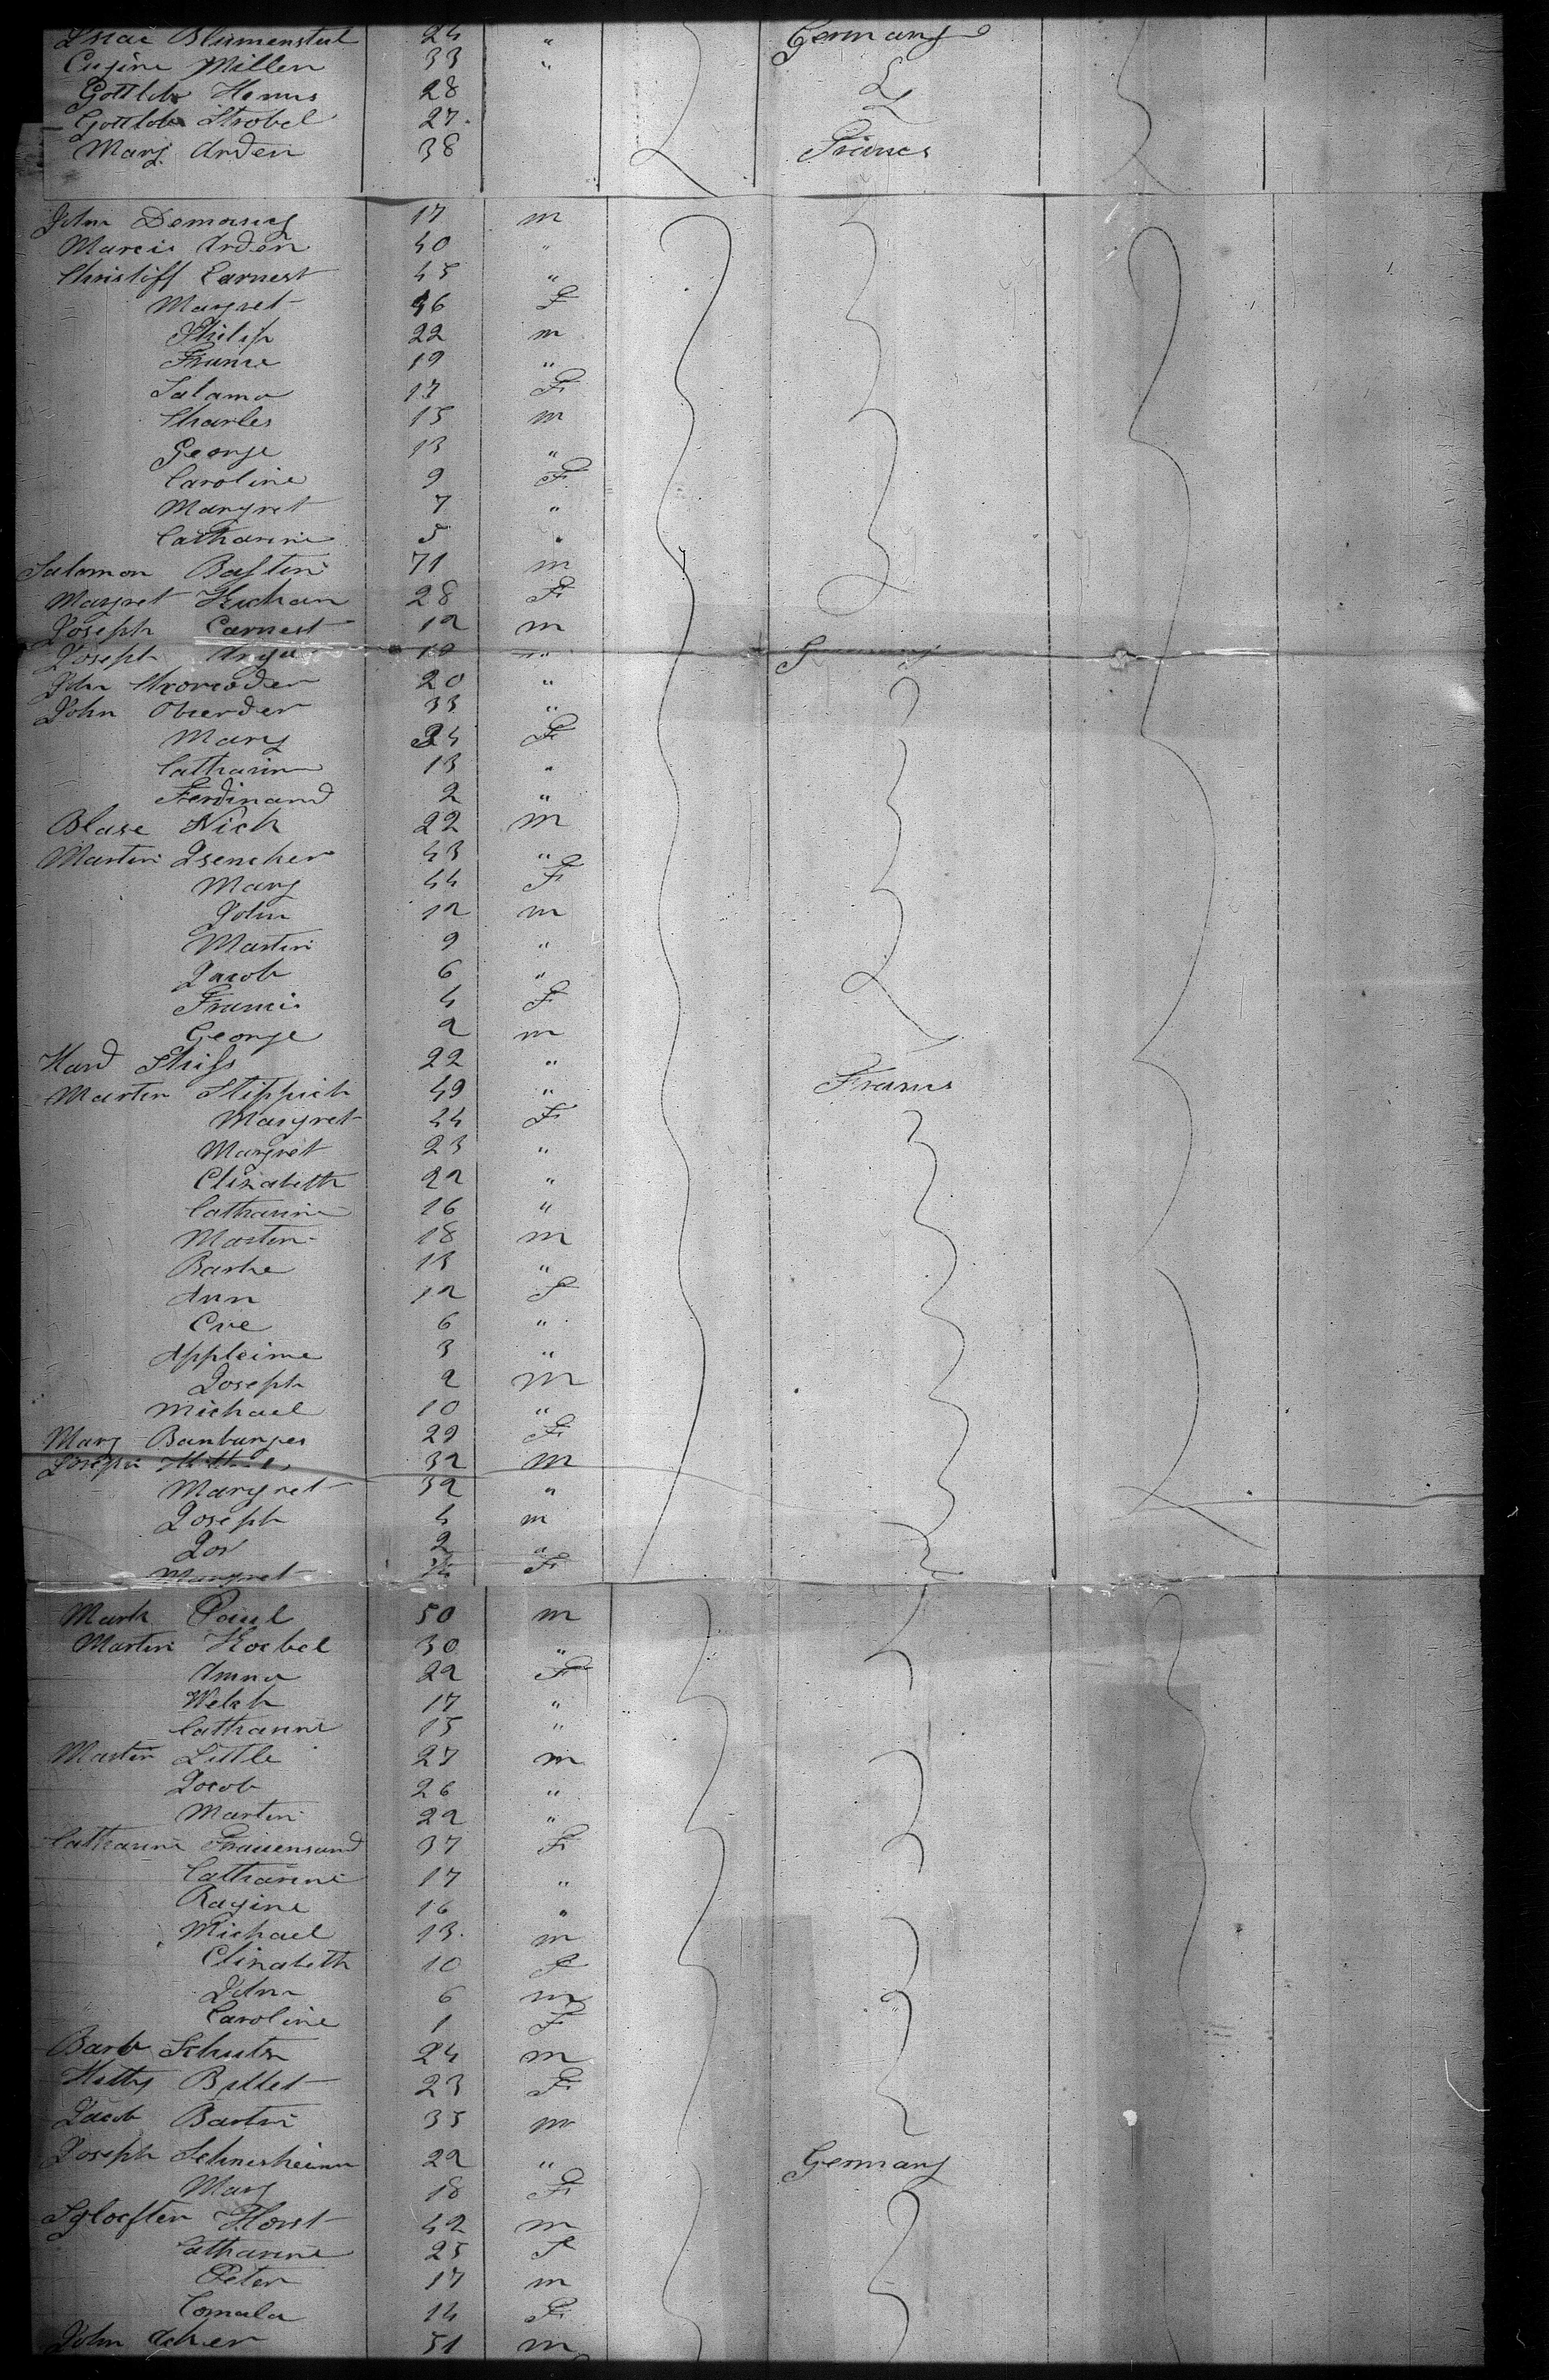 Isaac Blumenstiel 24 " Germany
Eugine Miller 33 "
Gottlob 28
Gottlob Strobel 27
Mary Arden 38 France
John Demarcy 17 m
Marcis Arden 40 "
Christiff Earnest 45 "
Margret 46 F
Philip 22 m
France 19 "
Salama 17 F
Charles 15 m
George 13 "
Caroline 9 F
Margret 7 "
Catharine 5 "
Salomon Bastin 71 m
Margret 28 F
Joseph Earnest 12 m
Joseph 19 "
John 20 "
John Oberder 33 "
Mary 34 F
Catharine 13 "
Ferdinand 2 "
Blase Nick 22 m
Martin Isencher 43 "
Mary 44 F
John 12 m
Martin 9 "
Jacob 6 "
Francis 4 F
George 2 m
Hard 22 "
Martin Stippich 49 " France
Margret 44 F
Margret 23 "
Elizabeth 22 "
Catharine 16 "
Martin 18 m
Barbe 13 "
Ann 12 F
Eve 6 "
Appleime 3 "
Joseph 2 m
Michael 10 "
Mary Banburger 29 F
Joseph 32 m
Margret 32 "
Joseph 4 m
Jos 2 "
Margret F
Mark Paul 50 m
Martin Koebel 30 "
Anna 22 F
Welch 17 "
Catharine 15 "
Martin Little 27 m
Jacob 26 "
Martin 22 "
Catharine Frauensand 37 F
Catharine 17 "
Ragine 16 "
Michael 13 m
Elizabeth 10 F
John 6 m
Caroline 1 F
Barb Schutz 24 m
Hetty Billet 23 F
Jacob Bastin 35 m
Joseph 22 " Germany
Mary 18 F
Horst 42 m
Catharine 25 F
Peter 17 m
Comala 14 F
John Acher 51 m